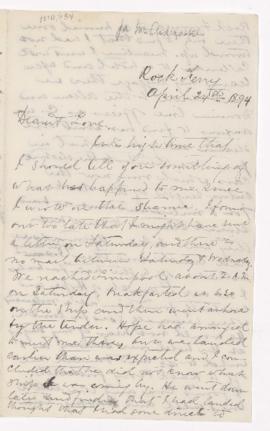 Rock Ferry
April 24th 1894
Dear Love
It is high time that
I should tell you something of
what has happened to me since
I wrote on the I found
out too late that I might have sent
a letter on Saturday, and there is
no mail between Saturday & Wednesday
We reached Liverpool about 2 A.M.
on Saturday, breakfasted at 6.30
on the ship and then went ashore
by the tender. Hope had arranged
to meet me there, but we landed
earlier than was expected and I con-
cluded that he did not know what
ship I was coming by. He went down
later and that I had landed
thought that I had gone direct to